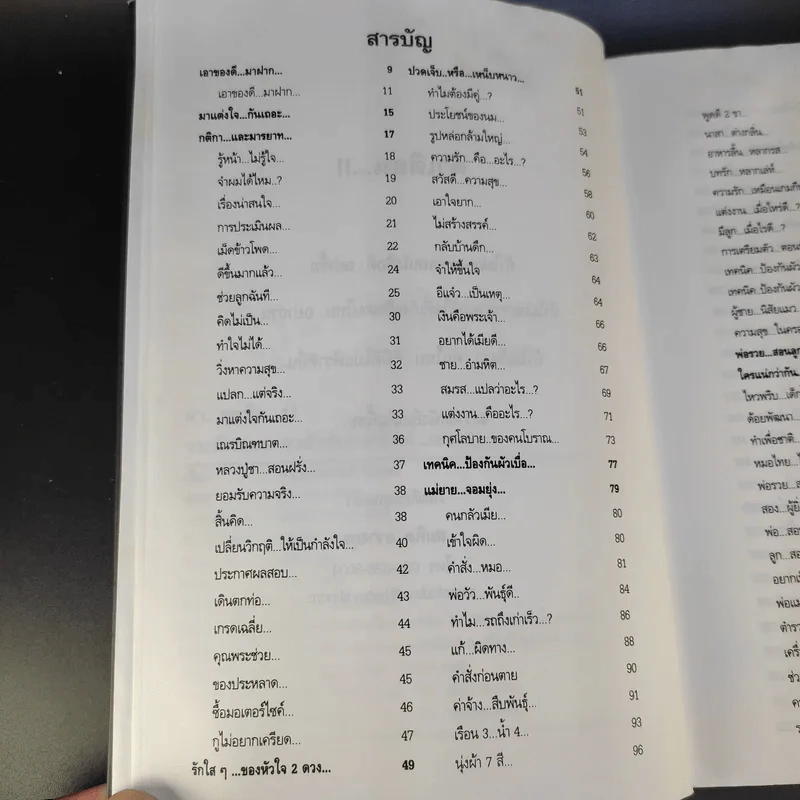 สารบัญ
เอาของดี...มาฝาก... 9
เอาของดี...มาฝาก... 11
มาแต่งใจ...กันเถอะ... 15
กติกา...และมารยาท... 17
รู้หน้า...ไม่รู้ใจ... 18
จำผมได้ไหม..? 19
เรื่องน่าสนใจ... 20
การประเมินผล... 21
เม็ดข้าวโพด... 22
ดีขึ้นมากแล้ว... 24
ช่วยลูกฉันที... 25
คิดไม่เป็น... 30
ทำใจไม่ได้... 31
วิ่งหาความสุข... 32
แปลก...แต่จริง... 33
มาแต่งใจกันเถอะ... 33
เณรบิณฑบาต... 36
หลวงปู่ชา...สอนฝรั่ง... 37
ยอมรับความจริง... 38
สิ้นคิด... 38
เปลี่ยนวิกฤติ...ให้เป็นกำลังใจ... 40
ประกาศผลสอบ... 42
เดินตกท่อ... 43
เกรดเฉลี่ย... 44
คุณพระช่วย... 45
ของประหลาด... 45
ซื้อมอเตอร์ไซค์... 46
กูไม่อยากเครียด... 47
รักใส ๆ ...ของหัวใจ 2 ดวง... 49
ปวดเจ็บ..หรือ...เหน็บหนาว... 51
ทำไมต้องมีคู่...? 51
ประโยชน์ของนม... 53
รูปหล่อกล้ามใหญ่... 54
ความรัก...คือ...อะไร...? 56
สวัสดี...ความสุข... 58
เอาใจยาก... 60
ไม่สร้างสรรค์... 62
กลับบ้านดึก... 63
จำให้ขึ้นใจ 64
อีแจ๋ว...เป็นเหตุ... 64
เงินคือพระเจ้า... 66
อยากได้เมียดี... 66
ชาย...อำมหิต... 67
สมรส...แปลว่าอะไร...? 69
แต่งงาน...คืออะไร...? 71
กุศโลบาย...ของคนโบราณ... 73
เทคนิค...ป้องกันผัวเบื่อ... 77
แม่ยาย...จอมยุ่ง... 79
คนกลัวเมีย... 80
เข้าใจผิด... 80
คำสั่ง...หมอ... 81
พ่อวัว...พันธุ์ดี.. 84
ทำไม...รถถึงเก่าเร็ว...? 86
แก้...ผิดทาง... 88
คำสั่งก่อนตาย 90
ค่าจ้าง...สืบพันธุ์... 91
เรือน 3...น้ำ 4... 93
นุ่งผ้า 7 สี... 96
พูดดี 2 ชา...
นาสา...ต่างกลิ่น...
อาหารลิ้น...หลากรส...
บทรัก...หลากเล่ห์...
ความรัก...เหมือนเกมกี
แต่งงาน...เมื่อไหร่ดี...?
มีลูก...เมื่อไรดี...?
การเตรียมตัว...ตอน
เทคนิค...ป้องกันผัว
เทคนิค..ป้องกันผัว
ผู้ชาย...นิสัยแมว...
ความสุข...ในคร
พ่อรวย...สอนลูก
ใครแน่กว่ากัน...
ไหวพริบ...เด็ก
ด้อยพัฒนา...
ทำเพื่อชาติ...
หมอไทย...
พ่อรวย...ส
สอง...ผู้ยิ่
พ่อ...สอ
ลูก...สอ
อยากเ
พ่อแม
ตำรว
เครื่
ช่ว